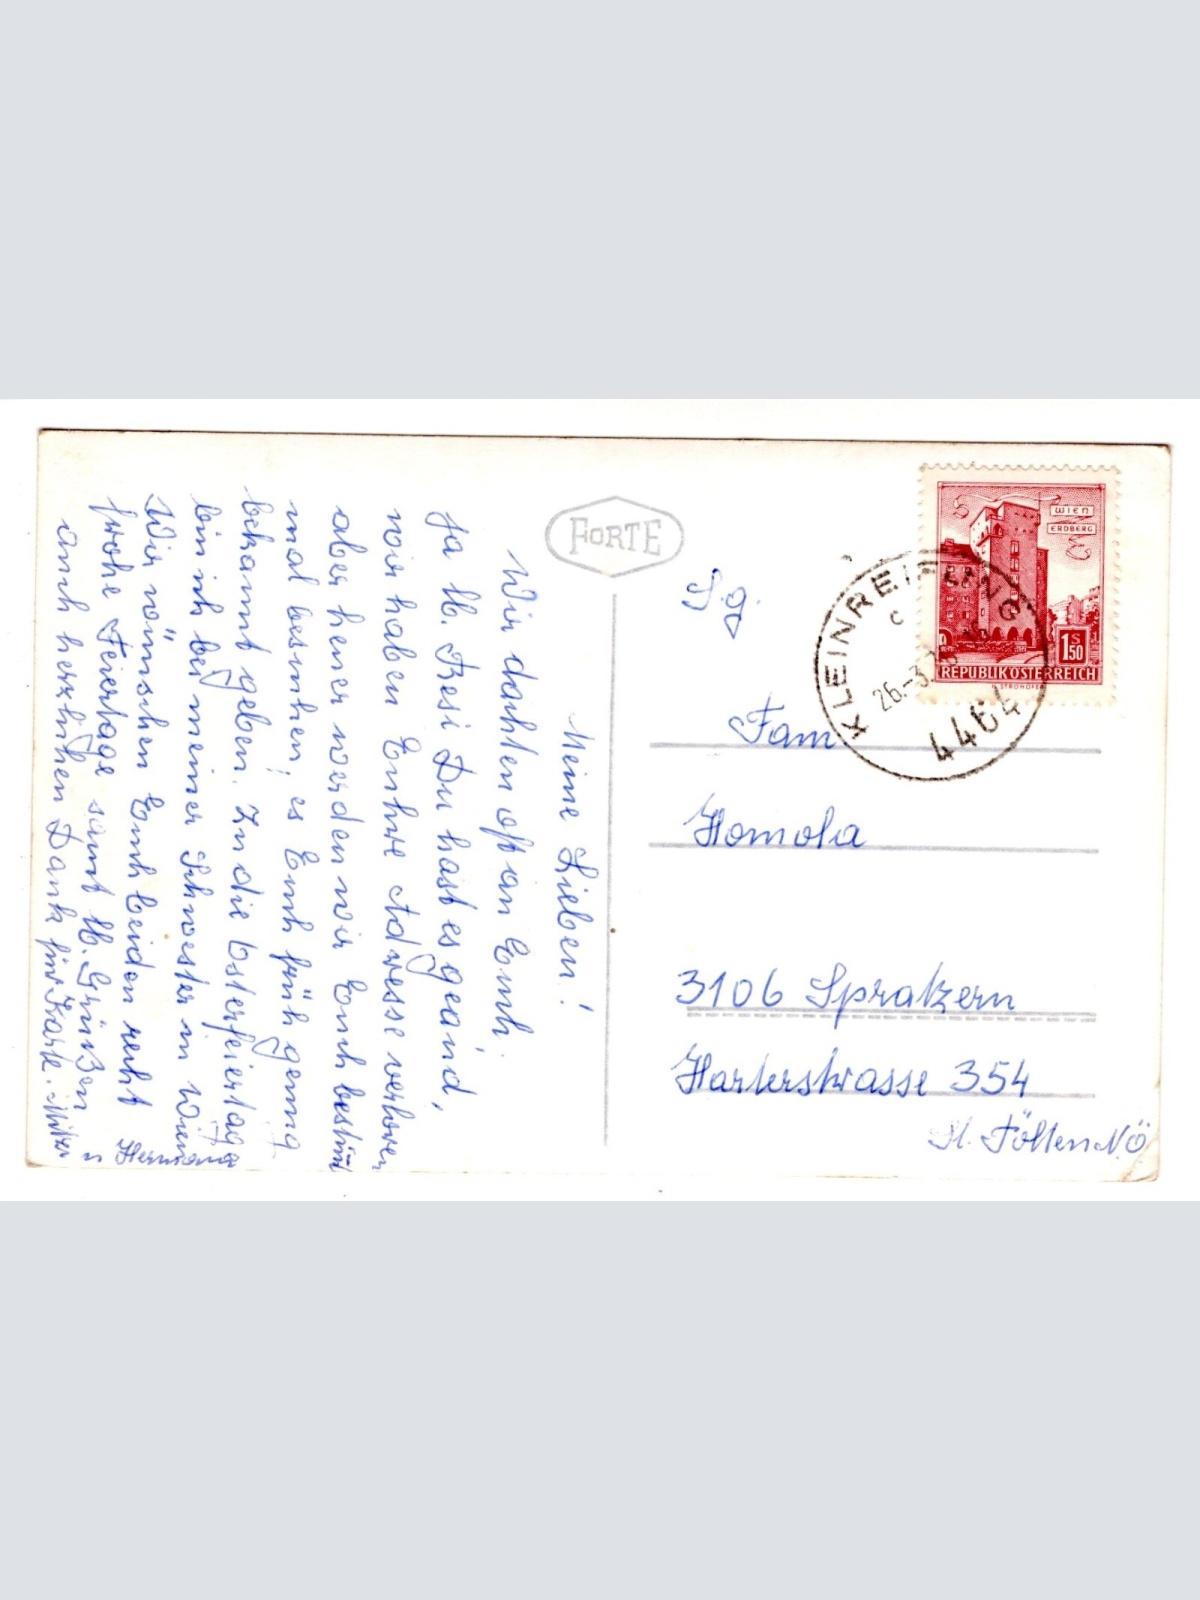 Meine Lieben!
Wir dachten oft an Euch.
Ja lb. Resi Du hast es geänd,
wir haben Euhre Adresse verloren
aber heuer werden wir Euch bestim
mal besuchen, es Euch früh genug
bekannt geben. In die Osterfeiertage
bin ich bei meiner Schwester in Wien
Wir wünschen Euch beiden recht
frohe Feiertage samt lb. Grüßen
auch herzlichen Dank für Karte.
u Hermann
FORTE
S.g.
Fam
Homola
3106 Spratzern
Harterstrasse 354
St. Pölten NÖ
WIEN
ERDBERG
1 S 50
REPUBLIK ÖSTERREICH
H. STROHOFER
KLEINREIFLING
c
26.-3.
4464